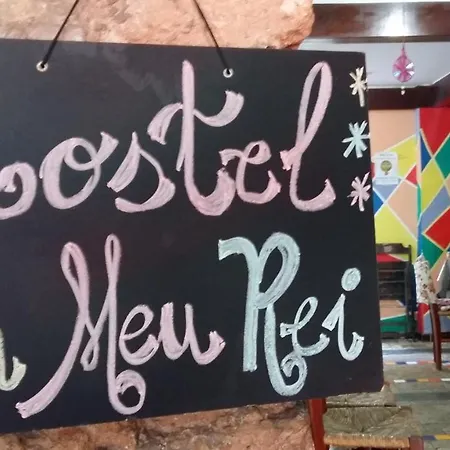 Hostel
Meu Rei